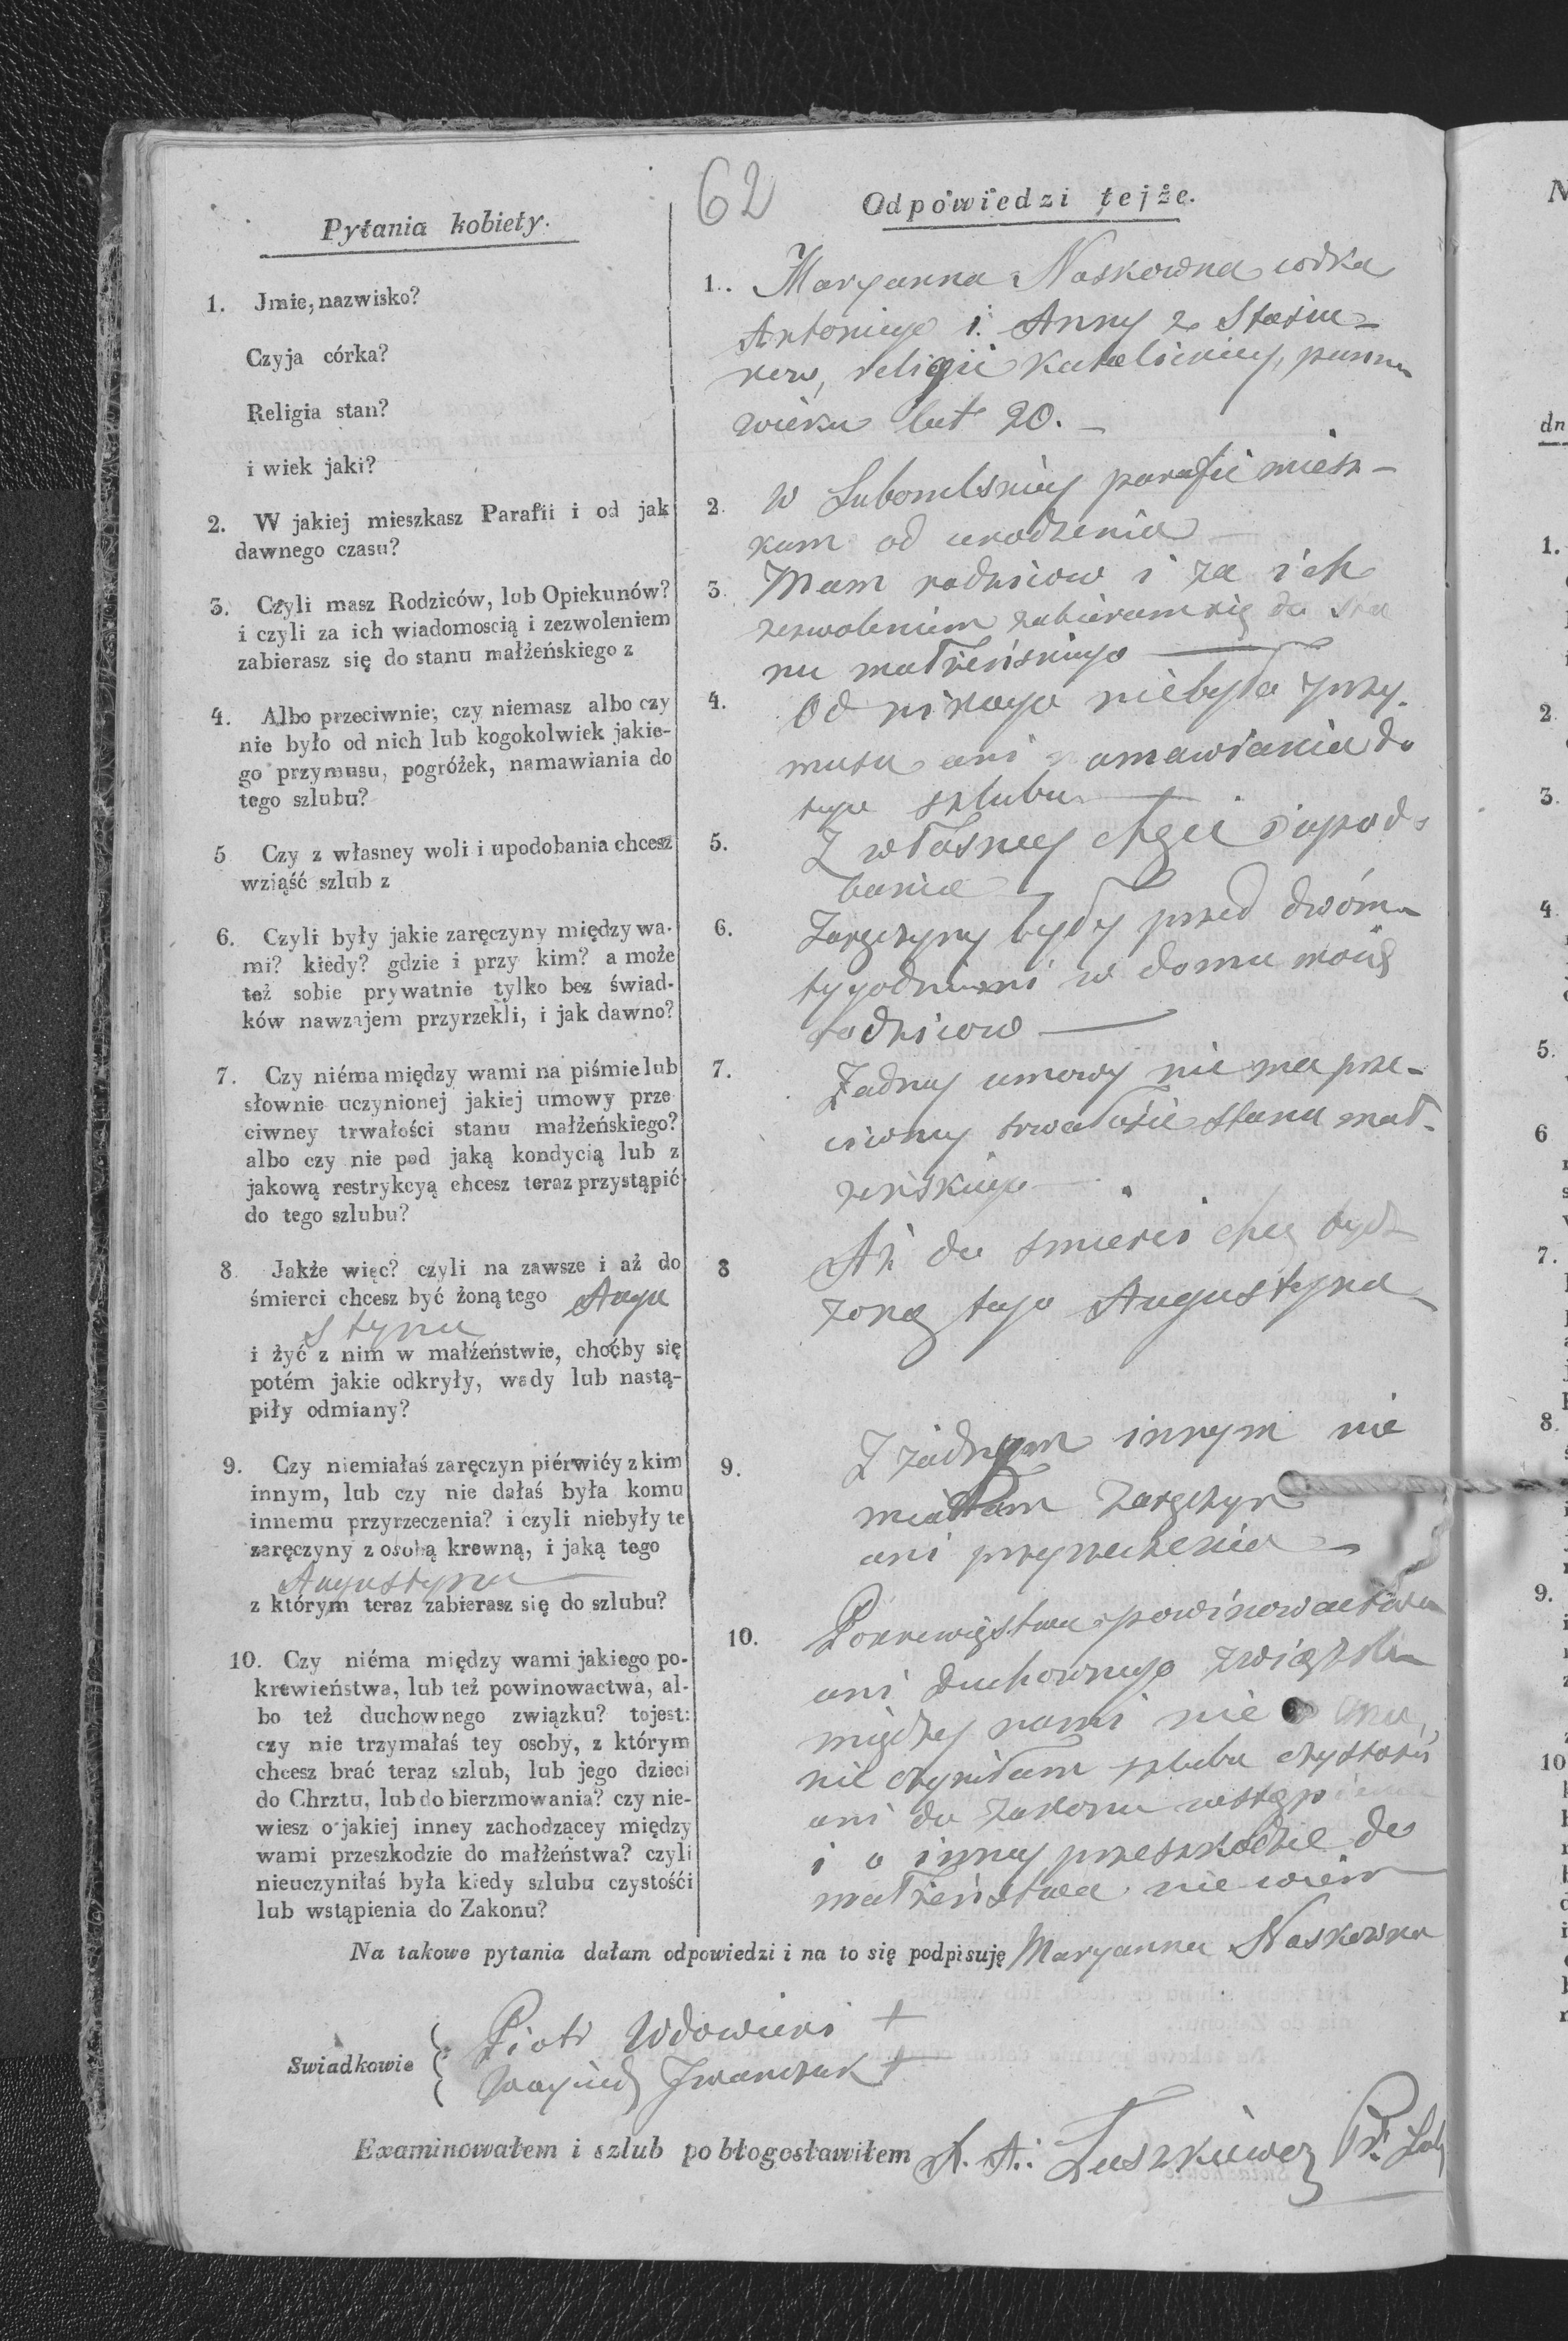 62
Pytania kobiety.
1. Jmie, nazwisko?
Czyja córka?
Religia stan?
i wiek jaki?
2. W jakiej mieszkasz Parafii i od jak
dawnego czasu?
3. Czyli masz Rodziców, lub Opiekunów?
i czyli za ich wiadomoscią i zezwoleniem
zabierasz się do stanu małżeńskiego z
4. Albo przeciwnie; czy niemasz albo czy
nie było od nich lub kogokolwiek jakie-
go przymusu, pogróżek, namawiania do
tego szlubu?
5 Czy z własney woli i upodobania chcesz
wziąść szlub z
6. Czyli były jakie zaręczyny między wa-
mi? kiedy? gdzie i przy kim? a może
też sobie prywatnie tylko bez świad-
ków nawzajem przyrzekli, i jak dawno?
7. Czy niéma między wami na piśmie lub
słownie uczynionej jakiej umowy prze
ciwney trwałości stanu małżeńskiego?
albo czy nie pod jaką kondycią lub z
jakową restrykcyą chcesz teraz przystąpić
do tego szlubu?
8. Jakże więc? czyli na zawsze i aż do
śmierci chcesz być żoną tego Augu
styna
i żyć z nim w małżeństwie, choćby się
potém jakie odkryły, wady lub nastą-
piły odmiany?
9. Czy niemiałaś zaręczyn piérwićy z kim
innym, lub czy nie dałaś była komu
innemu przyrzeczenia? i czyli niebyły te
zaręczyny z osobą krewną, i jaką tego
Augustyna
z którym teraz zabierasz się do szlubu?
10. Czy niéma między wami jakiego po-
krewieństwa, lub też powinowactwa, al-
bo też duchownego związku? tojest:
czy nie trzymałaś tey osoby, z którym
chcesz brać teraz szlub, lub jego dzieci
do Chrztu, lub do bierzmowania? czy nie-
wiesz o jakiej inney zachodzącey między
wami przeszkodzie do małżeństwa? czyli
nieuczyniłaś była kiedy szlubu czystośći
lub wstąpienia do Zakonu?
Odpowiedzi tejże.
1. Maryanna Noskowna corka
Antoniego i Anny z
religii Katolickiey, panna
wieku lat 20.
2. W Lubomlskiey parafii miesz-
kam od urodzenia
3. Mam rodzicow i za ich
zezwoleniem zabieram się do sta
nu małżeńskiego
4. Od nikogo niebyło przy-
musu ani namawiania do
tego szlubu
5. Z własney chęci i upodo
bania
6. Zaręczyny były przed dwóma
tygodniami w domu moich
rodzicow
7. Żadney umowy nie ma prze-
ciwney trwałości stanu mał-
żeńskiego
8 Aż do smierci chcę bydź
żoną tego Augustyna
9. Z żadnym innym nie
miałam zaręczyn
ani przyrzeczenia
10. Pokrewięstwa powinowactwa
ani duchownego związku
między nami nie ma,
nie czyniłam szlubu czystości
ani do zakonu wstąpienia
i o inney przeszkodzie do
małżeństwa nie wiem
Na takowe pytania dałam odpowiedzi i na to się podpisuję Maryanna Noskowna
Swiadkowie { Piotr +
Woyciech Iwanczuk +
Examinowałem i szlub pobłogosławiłem X. A.
N
dn
1.
2
3.
4
5.
6
7.
8.
9.
10